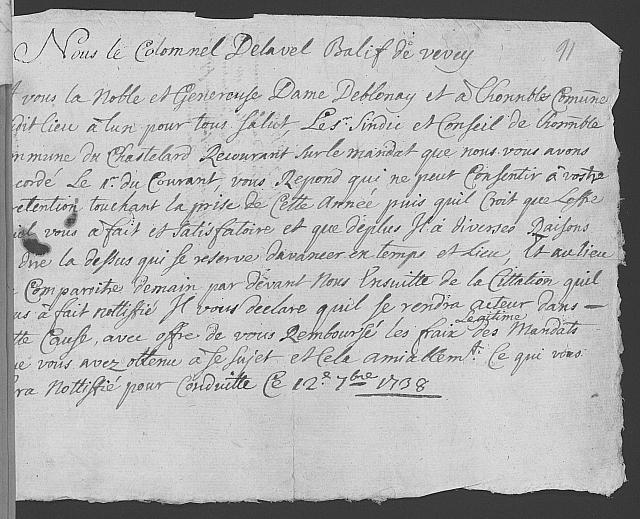 Nous le Colomnel Delavel Balif de vevey
91
A vous la Noble et Genereuse Dame Deblonay et à Lhonnble Comune
dit lieu à lun pour tous salut, Le Sr. Sindic et Conseil de Lhonnble
mmune du Chastelard Recourant sur le mandat que nous vous avons
cordé Le 1r. du Courant, vous Repond qui ne peut Consentir à vostre
retention touchant la prise de Cette Année puis quil Croit que Loffre
vous à fait est satisfatoire et que deplus Il à diverses Raisons
dire la dessus qui se reserve davancer en temps et Lieu, Et au lieu
Comparoitre demain par devant Nous Ensuitte de la Cittation quil
us à fait nottifié Il vous declare quil se rendra acteur dans
tte Cause, avec offre de vous Remboursé les fraix Legitime des Mandats
ue vous avez obtenu à se sujet et Cela amiallemt. Ce qui vous
ra Nottifié pour Conduitte Ce 12e. 7bre 1738